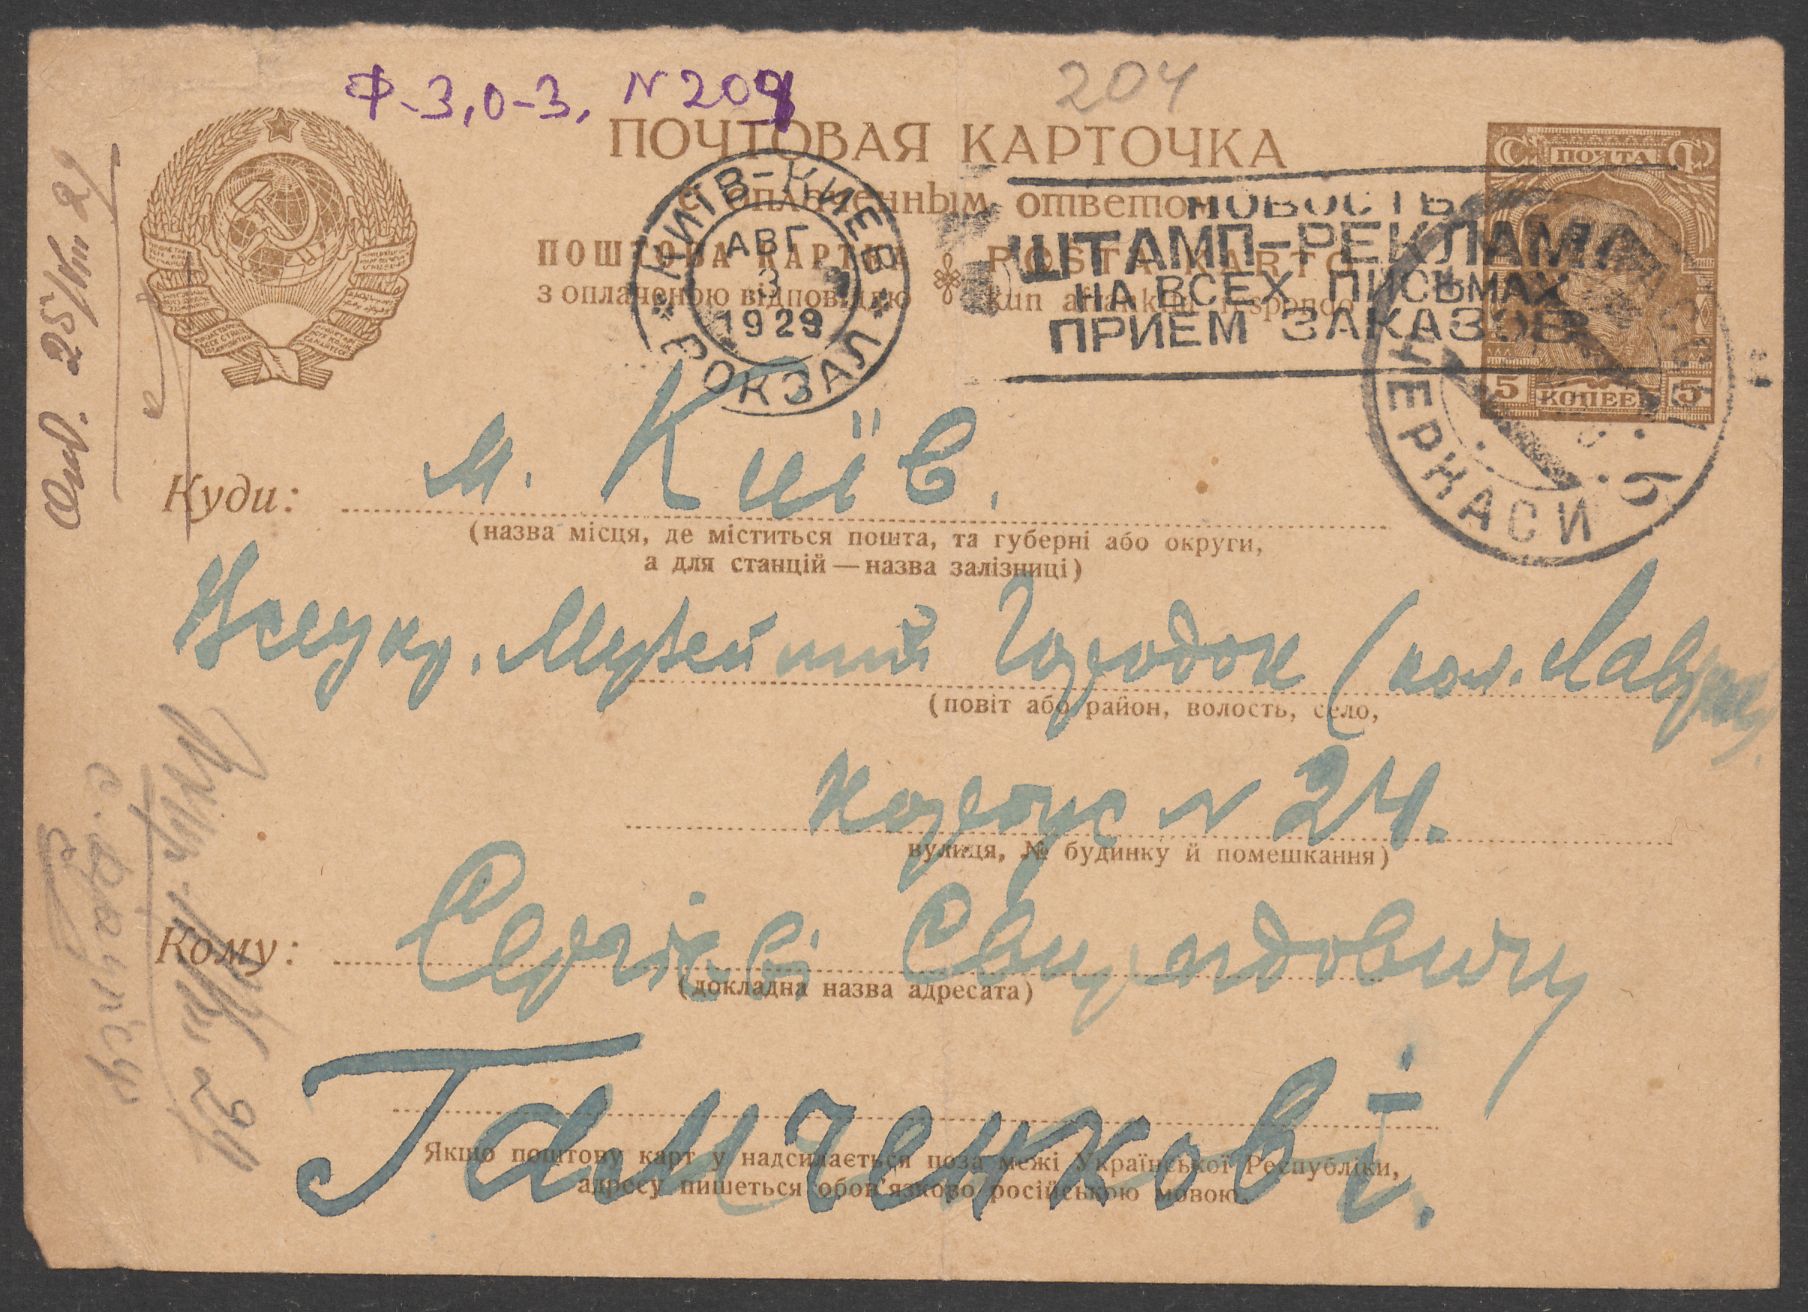 Ф-3, О-3, N 204
204
ПОЧТОВАЯ КАРТОЧКА
с оплаченным ответом
ПОШТОВА КАРТКА
з оплаченою відповіддю
POSTA KARTO
kun afrankita respondo
КИЇВ-КИЕВ
АВГ
3
1929
ВОКЗАЛ
НОВОСТЬ
ШТАМП-РЕКЛАМА
НА ВСЕХ ПИСЬМАХ
ПРИЕМ ЗАКАЗОВ
ПОЧТА
5 КОПЕЕК 5
ЧЕРКАСИ
Куди: м. Київ.
(назва місця, де міститься пошта, та губерні або округи,
а для станцій — назва залізниці)
Всеукр. Музейний Городок (кол. Лавра)
(повіт або район, волость, село,
корпус N 24.
вулиця, № будинку й помешкання)
Кому: Сергієві Свиридовичу
(докладна назва адресата)
Гамченкові.
Якщо поштову картку надсилається поза межі Української Республіки,
адресу пишеться обов'язково російською мовою.
25/VIII 29